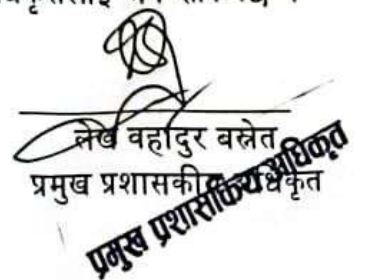 लेख वहादुर बस्नेत
प्रमुख प्रशासकीय अधिकृत
प्रमुख प्रशासकिय अधिकृत